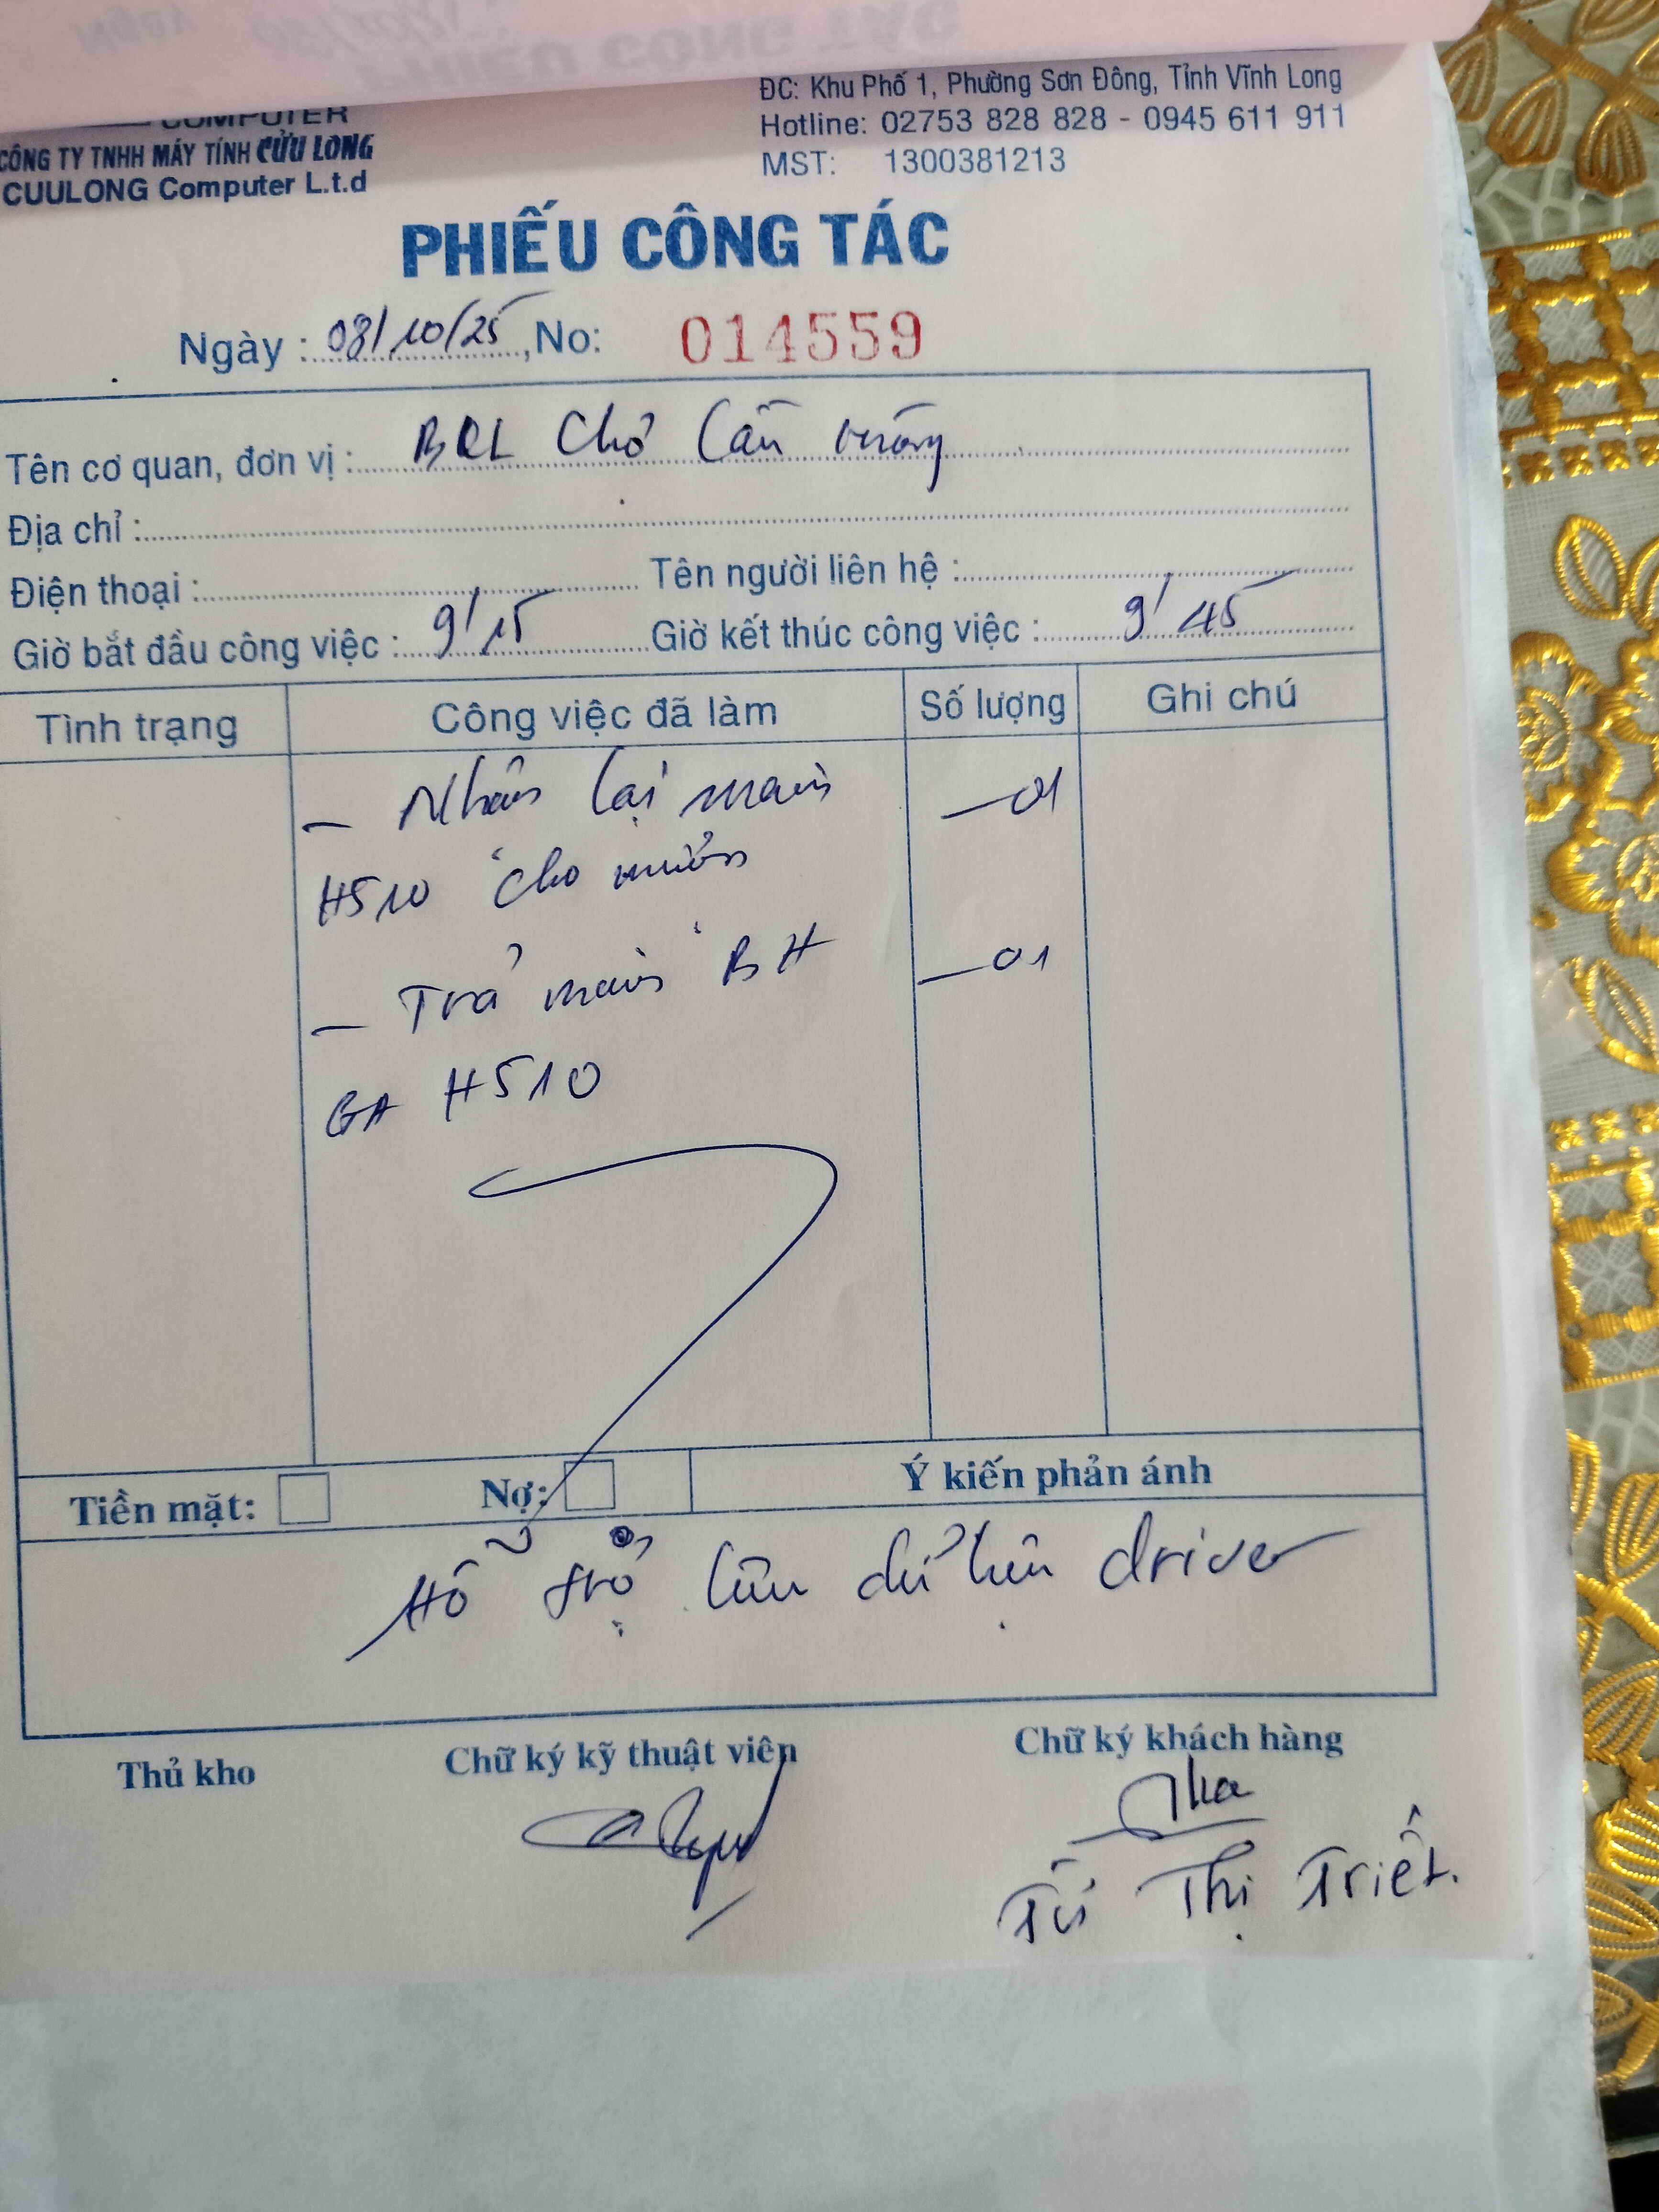 COMPUTER
CÔNG TY TNHH MÁY TÍNH CỬU LONG
CUULONG Computer L.t.d
ĐC: Khu Phố 1, Phường Sơn Đông, Tỉnh Vĩnh Long
Hotline: 02753 828 828 - 0945 611 911
MST: 1300381213
PHIẾU CÔNG TÁC
Ngày : 08/10/25, No: 014559
Tên cơ quan, đơn vị : BQL Chợ
Địa chỉ :
Điện thoại : Tên người liên hệ :
Giờ bắt đầu công việc : 9' 15 Giờ kết thúc công việc : 9' 45
Tình trạng Công việc đã làm Số lượng Ghi chú
- Nhận lại main - 01
H510 cho mượn
- Trả main BH - 01
GA H510
Tiền mặt: Nợ: Ý kiến phản ánh
Hỗ trợ driver
Thủ kho Chữ ký kỹ thuật viên Chữ ký khách hàng
Thị Triết.